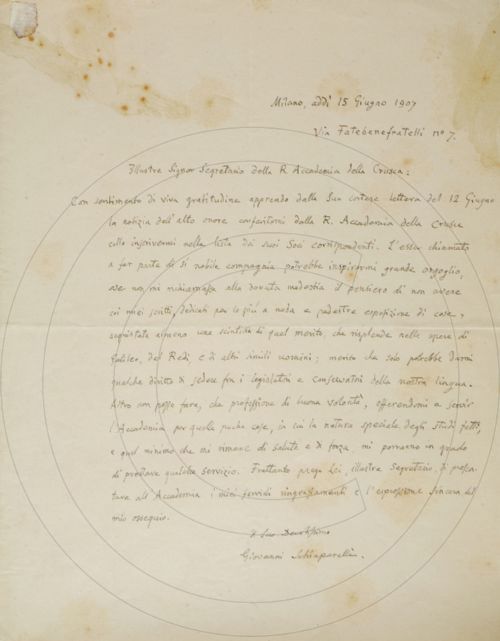 Milano, addì 15 Giugno 1907
Via Fatebenefratelli nº 7.
Illustre Signor Segretario della R. Accademia della Crusca:
Con sentimento di viva gratitudine apprendo dalla Sua cortese lettera del 12 Giugno
la notizia dell'alto onore conferitomi dalla R. Accademia della Crusca
collo inscrivermi nella lista dei suoi Soci corrispondenti. L'esser chiamato
a far parte di sì nobile compagnia potrebbe inspirarmi grande orgoglio,
ove non mi richiamasse alla dovuta modestia il pensiero di non avere
coi miei scritti, dedicati per lo più a nuda e pedestre esposizione di cose,
acquistata almeno una scintilla di quel merito, che risplende nelle opere di
Galileo, del Redi e di altri simili uomini; merito che solo potrebbe darmi
qualche diritto di sedere fra i legislatori e conservatori della nostra lingua.
Altro non posso fare, che professione di buona volontà, offerendomi a servir
l'Accademia per quelle poche cose, in cui la natura speciale degli studi fatti,
e quel minimo che mi rimane di salute e di forza mi porranno in grado
di prestare qualche servizio. Frattanto prego Lei, illustre Segretario, di presen-
tare all'Accademia i miei fervidi ringraziamenti e l'espressione sincera del
mio ossequio.
Il Suo Devotissimo
Giovanni Schiaparelli.